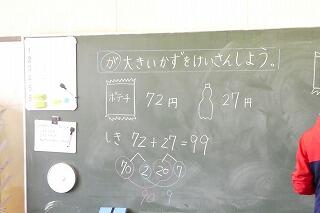 が 大きいかずをけいさんしよう。
ポテチ 72円 27円
しき 72+27=99
70 2 20 7
90 9